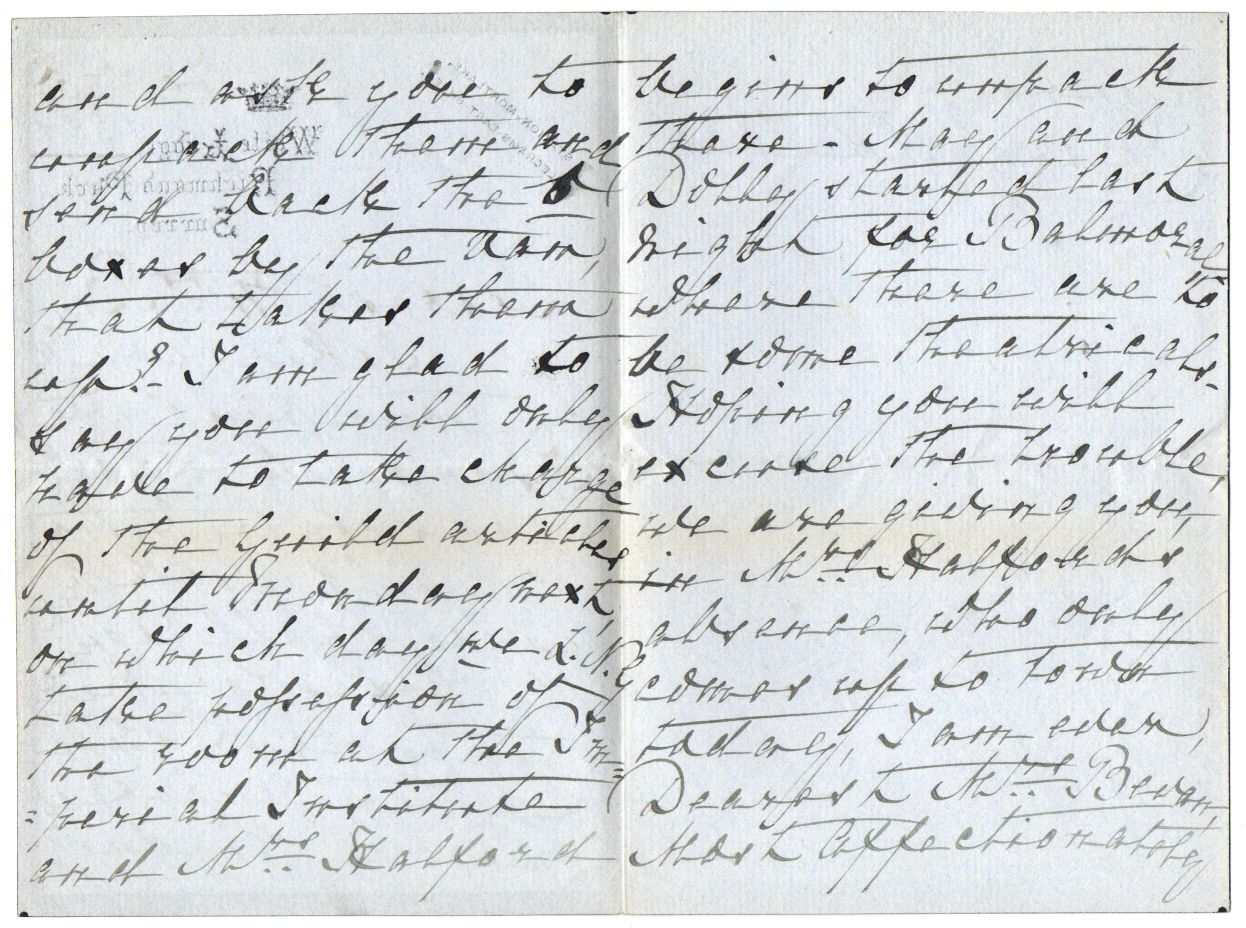 and ask you to
unpack them and
send back the 6
boxes by the Van,
that takes them
up? - I am glad to
say you will only
have to take charge
of the Guild articles
until Monday next,
on which day we L.N.G
take possession of
the room at the Im=
=perial Institute
and Mrs Halford
begins to unpack
there - May and
Dolly started last
night for Balmoral
where there are to
be some theatricals -
Hoping you will
excuse the trouble,
we are giving you,
in Mrs Halfords
absence, who only
comes up to town
today, I am ever,
Dearest Mrs Bevan,
Most affectionately
White Lodge
Richmond Park
Surrey.